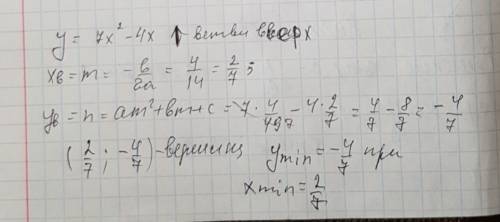 y = 7x² - 4x ↑ ветви вверх
xв = m = -в/2a = 4/14 = 2/7 ;
yв = n = am² + вm + c = 7 · 4/49 - 4 · 2/7 = 4/7 - 8/7 = -4/7
(2/7 ; -4/7) - вершина ymin = -4/7 при
xmin = 2/7